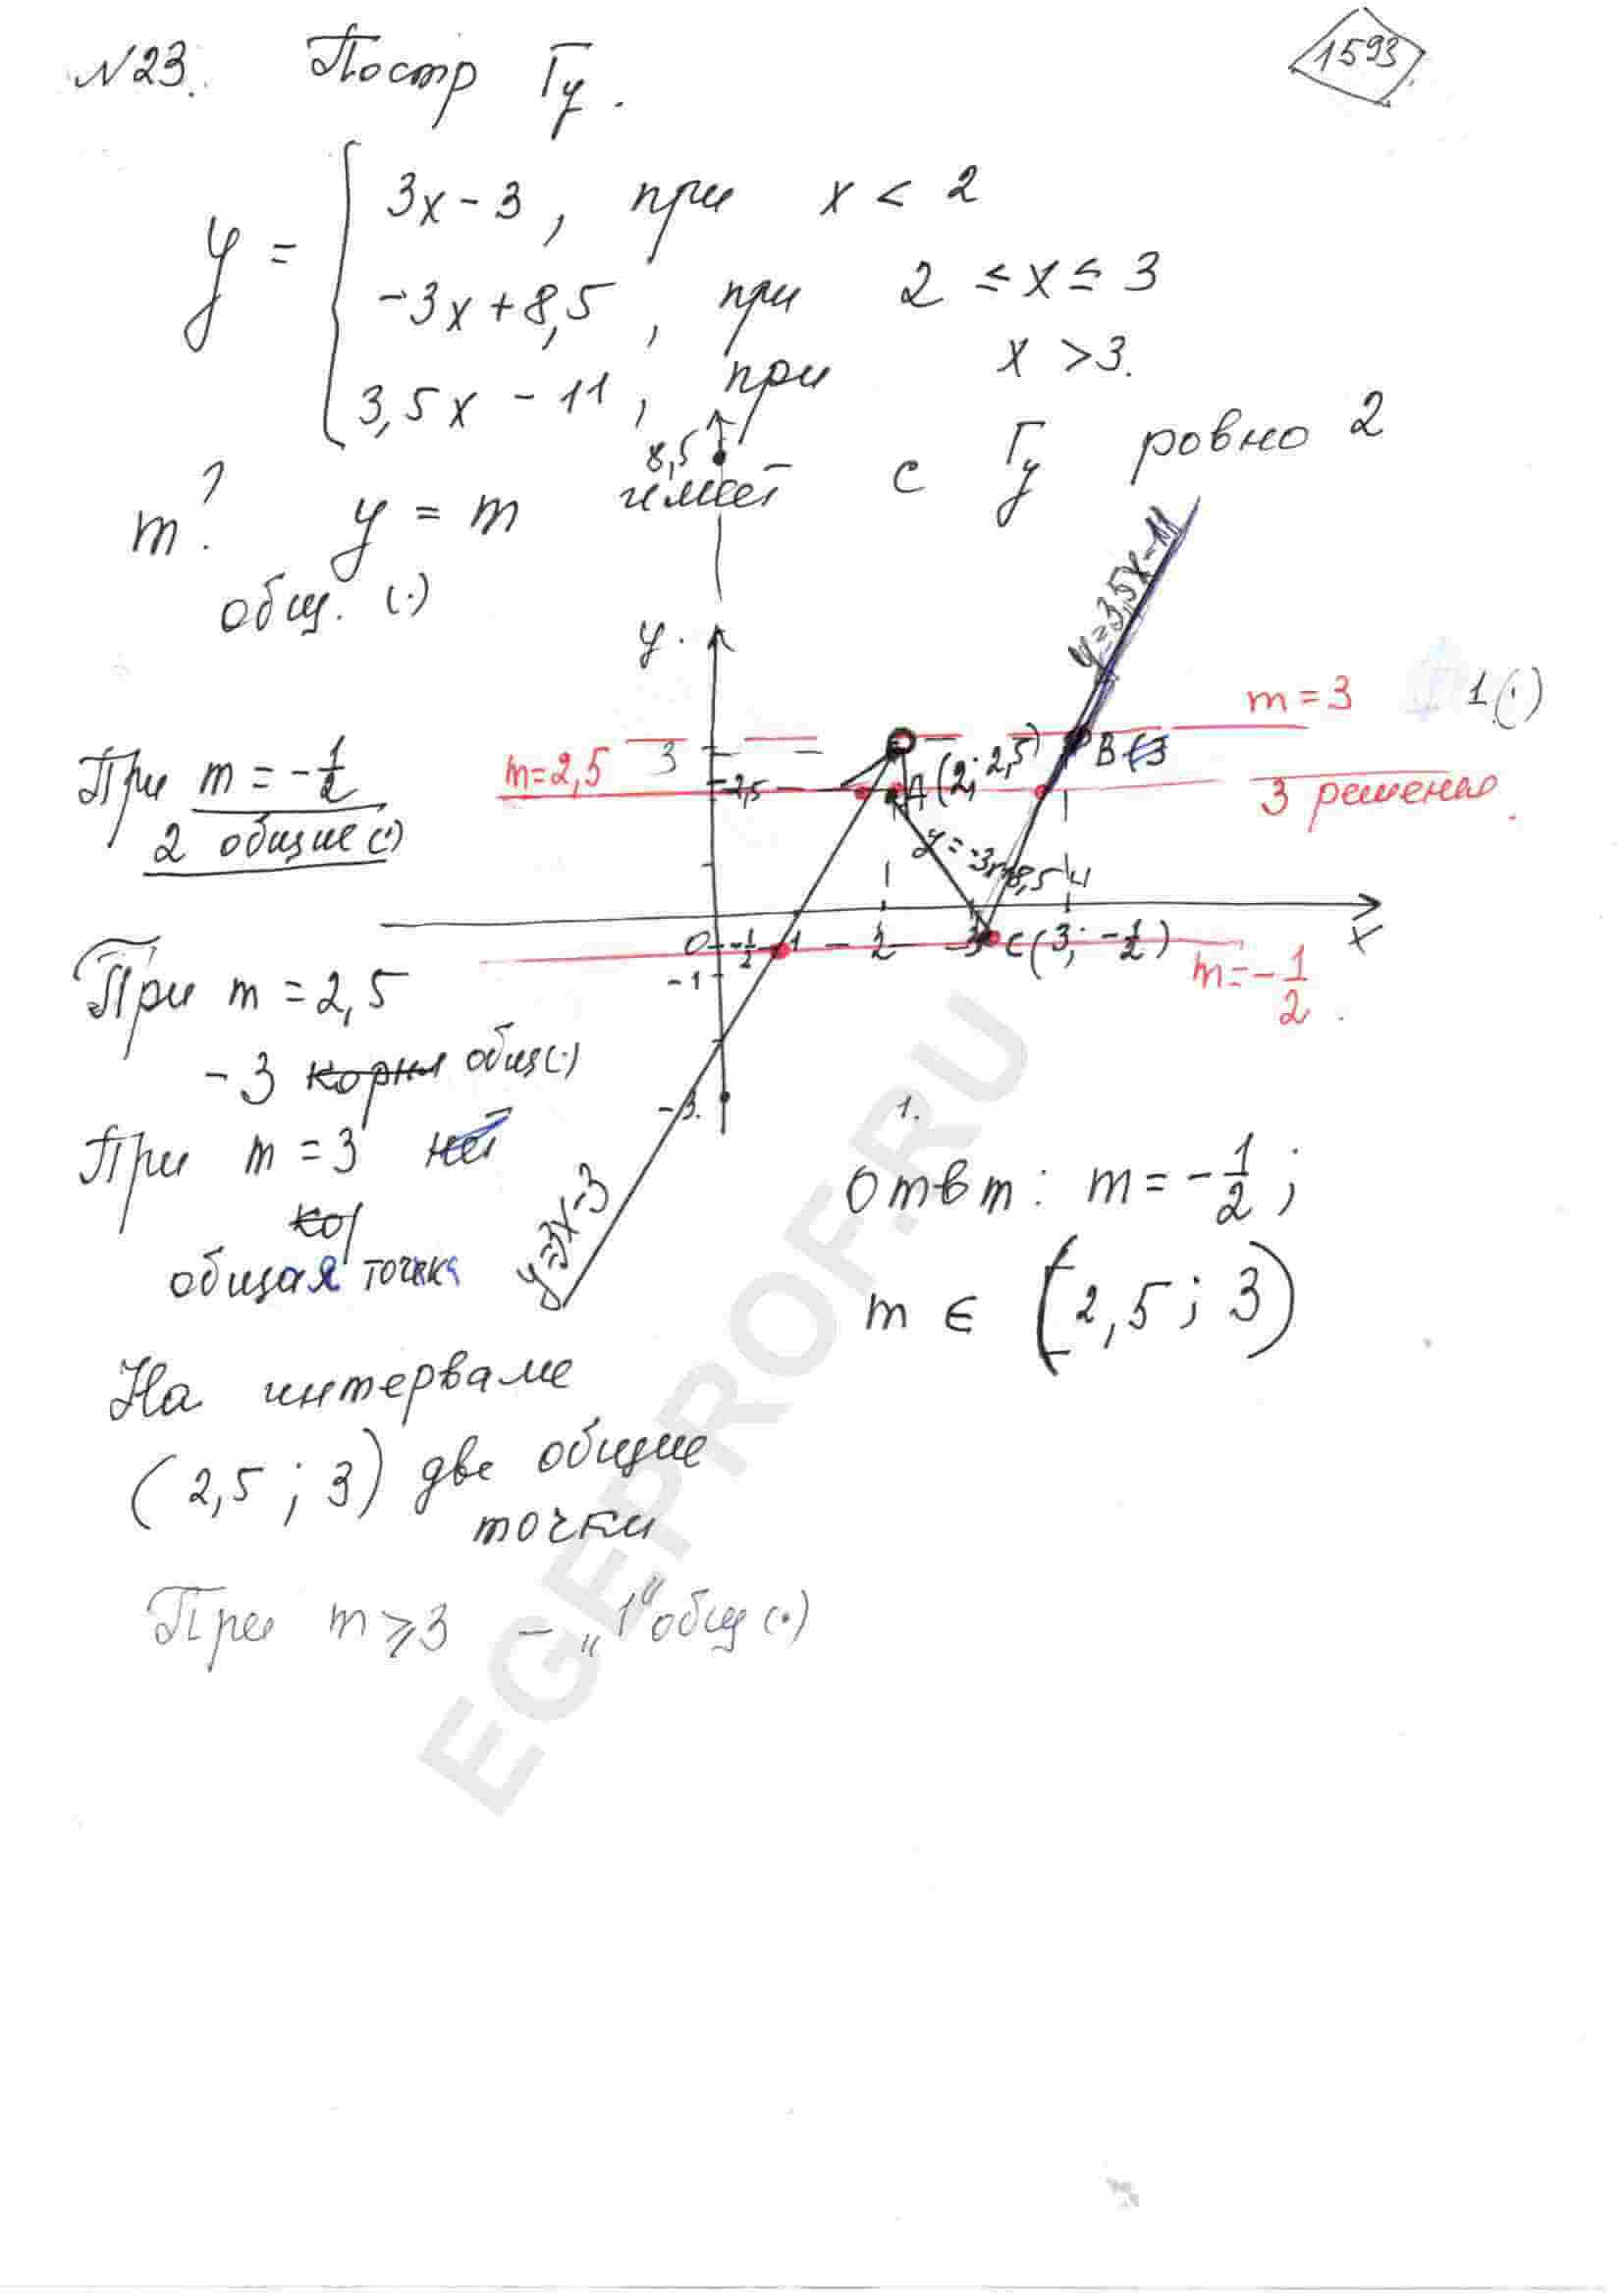 N23. Постр Гу.
1593
y =
3x - 3, при x < 2
-3x + 8,5, при 2 ≤ x ≤ 3
3,5x - 11, при x > 3.
m? y = m имеет с Гу ровно 2
общ. (·)
8,5
y.
y=3,5x-11
m = 3 1(·)
m=2,5
3
2,5
A(2; 2,5)
B(3
3 решения.
y=-3x+8,5
4
0 -1/2 1 2 3 C(3; -1/2)
x
m=-1/2.
-1
-3.
y=3x-3
При m = -1/2
2 общие (·)
При m = 2,5
- 3 корня общ(·)
При m = 3 нет
ко
общая точка
1.
На интервале
(2,5; 3) две общие
точки
При m ⩾ 3 - „1" общ (·)
Ответ: m = -1/2;
m ∈ [2,5; 3)
EGEPROF.RU